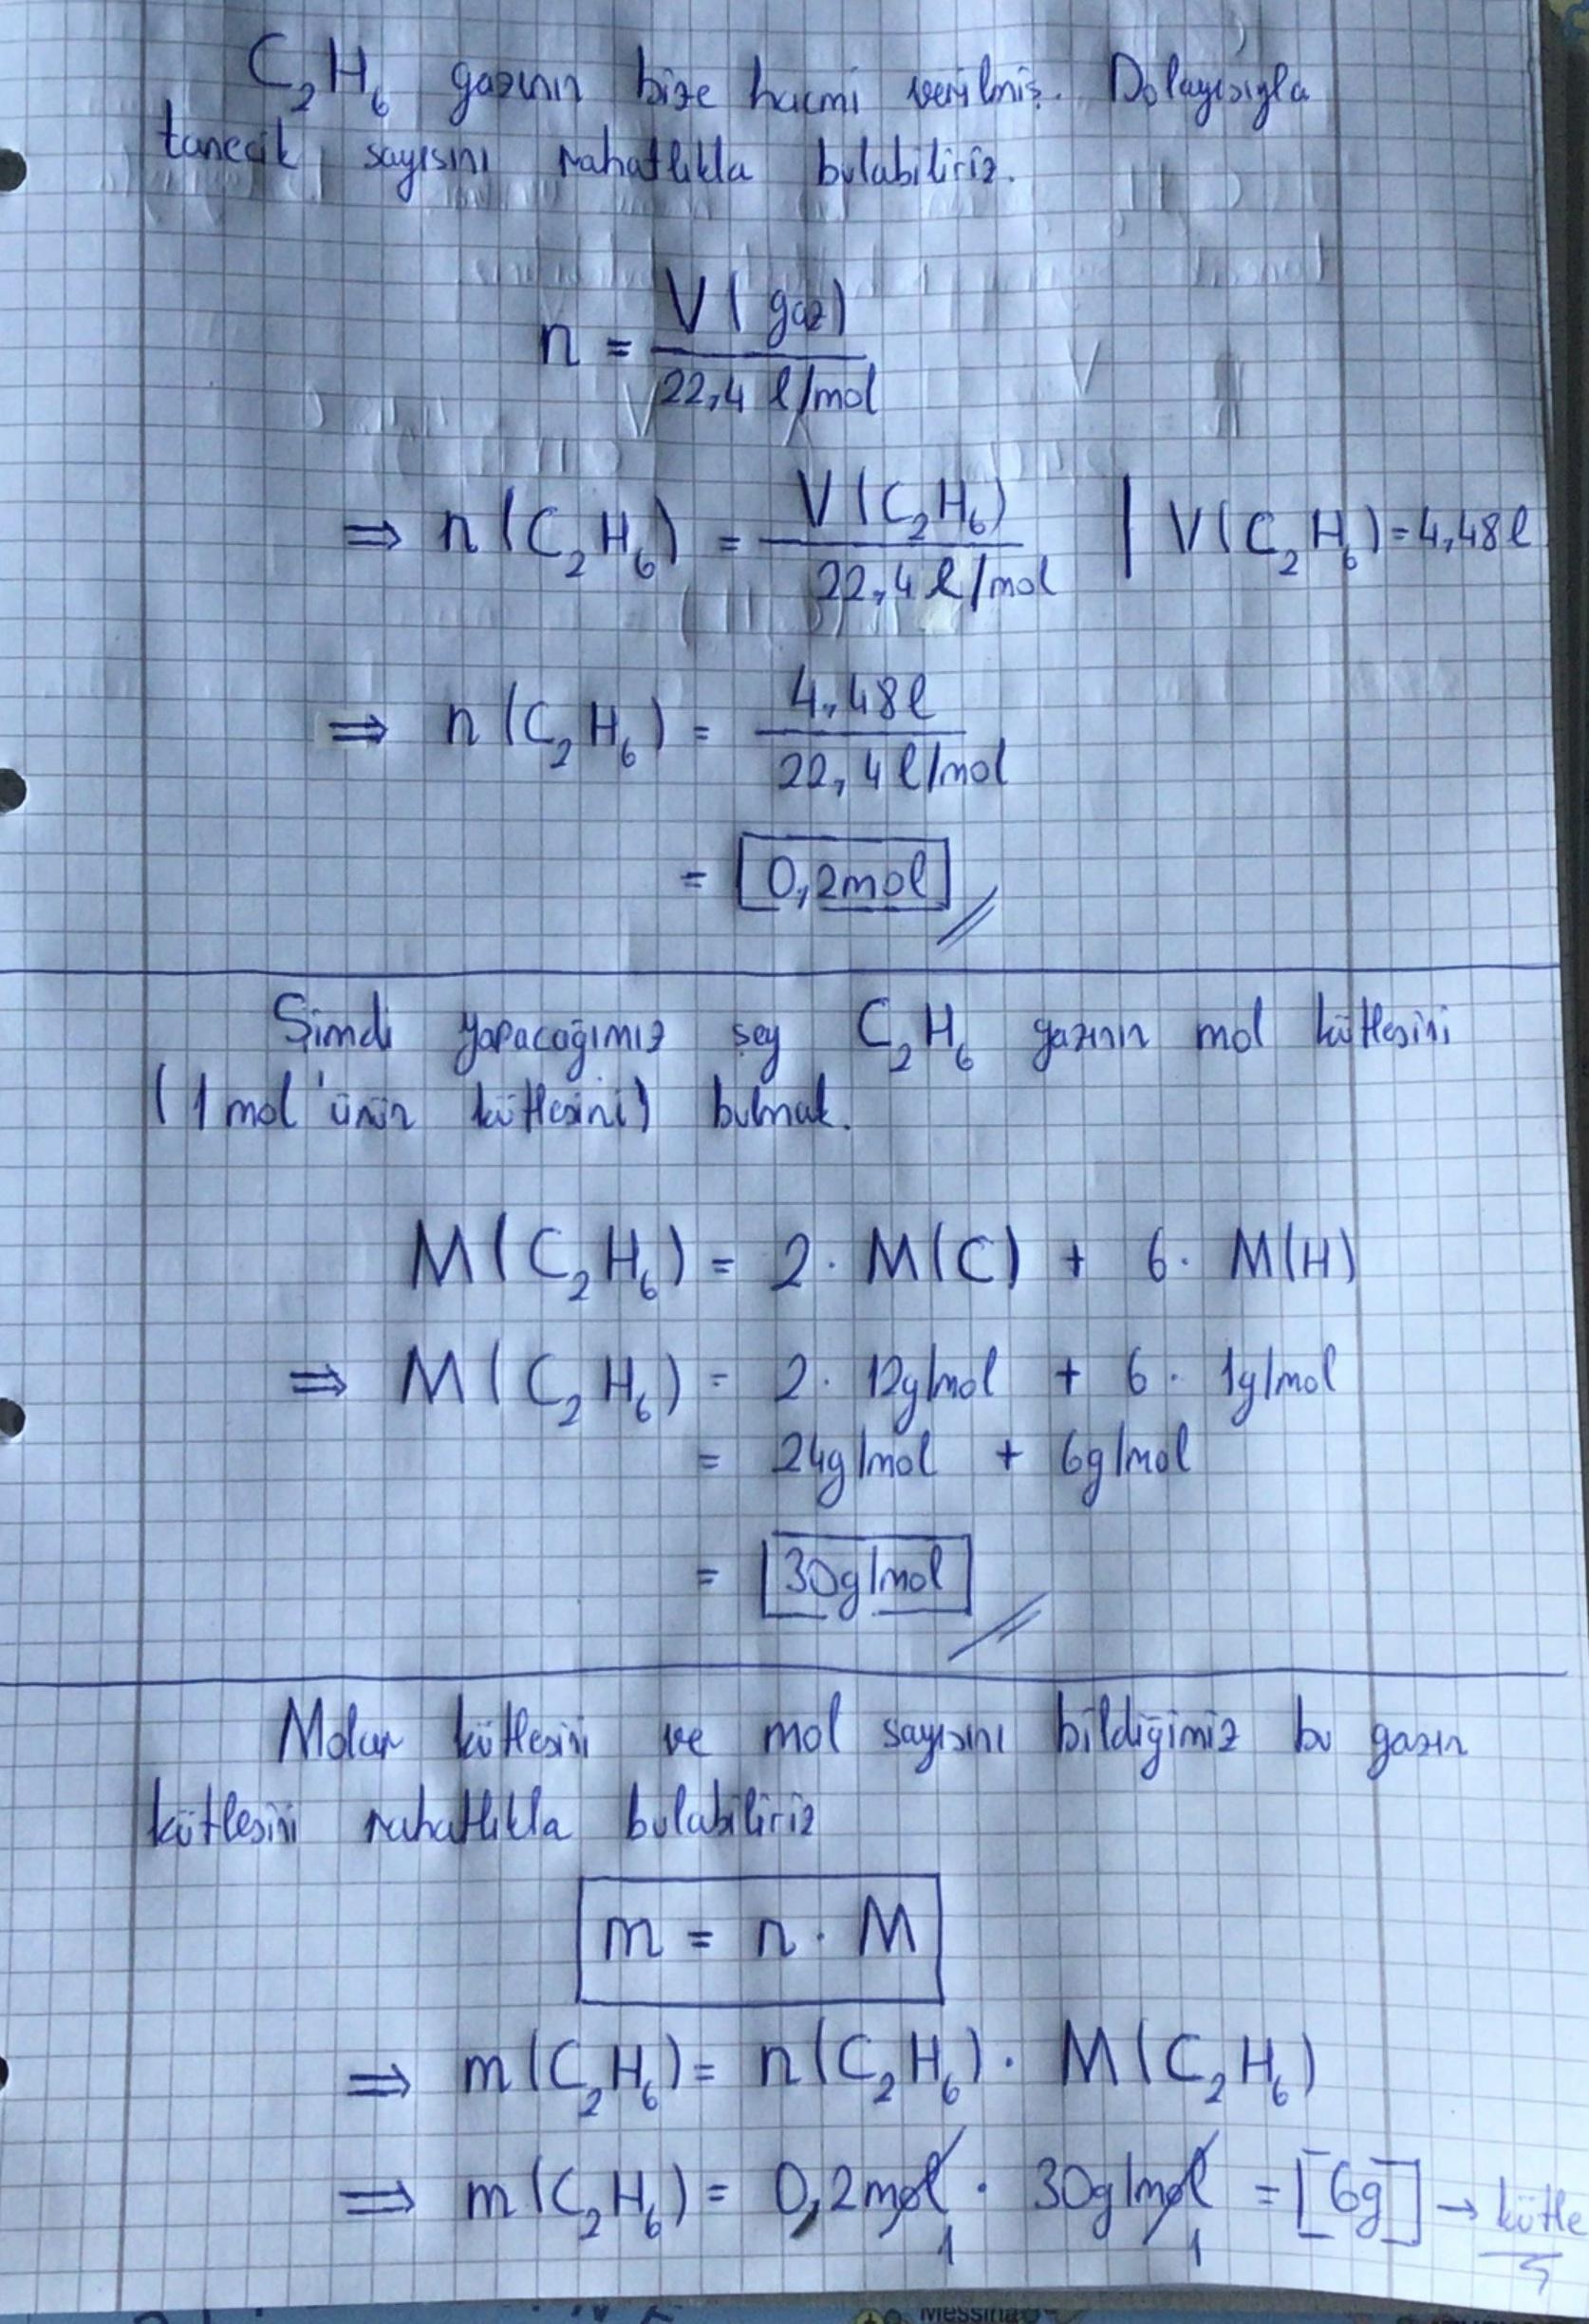 C₂H₆ gazının bize hacmi verilmiş. Dolayısıyla
tanecik sayısını rahatlıkla bulabiliriz.
n = V(gaz) / 22,4 l/mol
⇒ n(C₂H₆) = V(C₂H₆) / 22,4 l/mol | V(C₂H₆) = 4,48l
⇒ n(C₂H₆) = 4,48l / 22,4 l/mol
= 0,2mol
Şimdi yapacağımız şey C₂H₆ gazının mol kütlesini
(1 mol'ünün kütlesini) bulmak.
M(C₂H₆) = 2 · M(C) + 6 · M(H)
⇒ M(C₂H₆) = 2 · 12g/mol + 6 · 1g/mol
= 24g/mol + 6g/mol
= 30g/mol
Molar kütlesini ve mol sayısını bildiğimiz bu gazın
kütlesini rahatlıkla bulabiliriz
m = n · M
⇒ m(C₂H₆) = n(C₂H₆) · M(C₂H₆)
⇒ m(C₂H₆) = 0,2mol · 30g/mol = [6g] → kütle
1 1
Messina